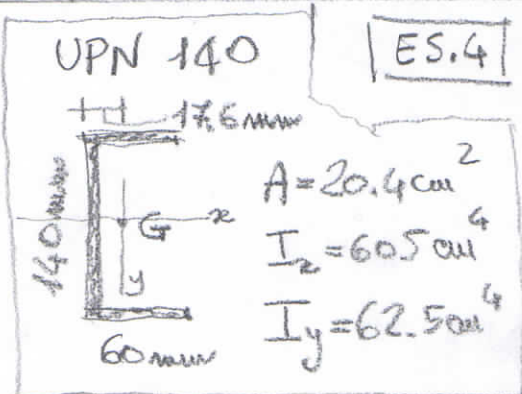 UPN 140
ES.4
17.5 mm
140 mm
G x
y
60 mm
A=20.4 cm²
Ix=605 cm⁴
Iy=62.5 cm⁴